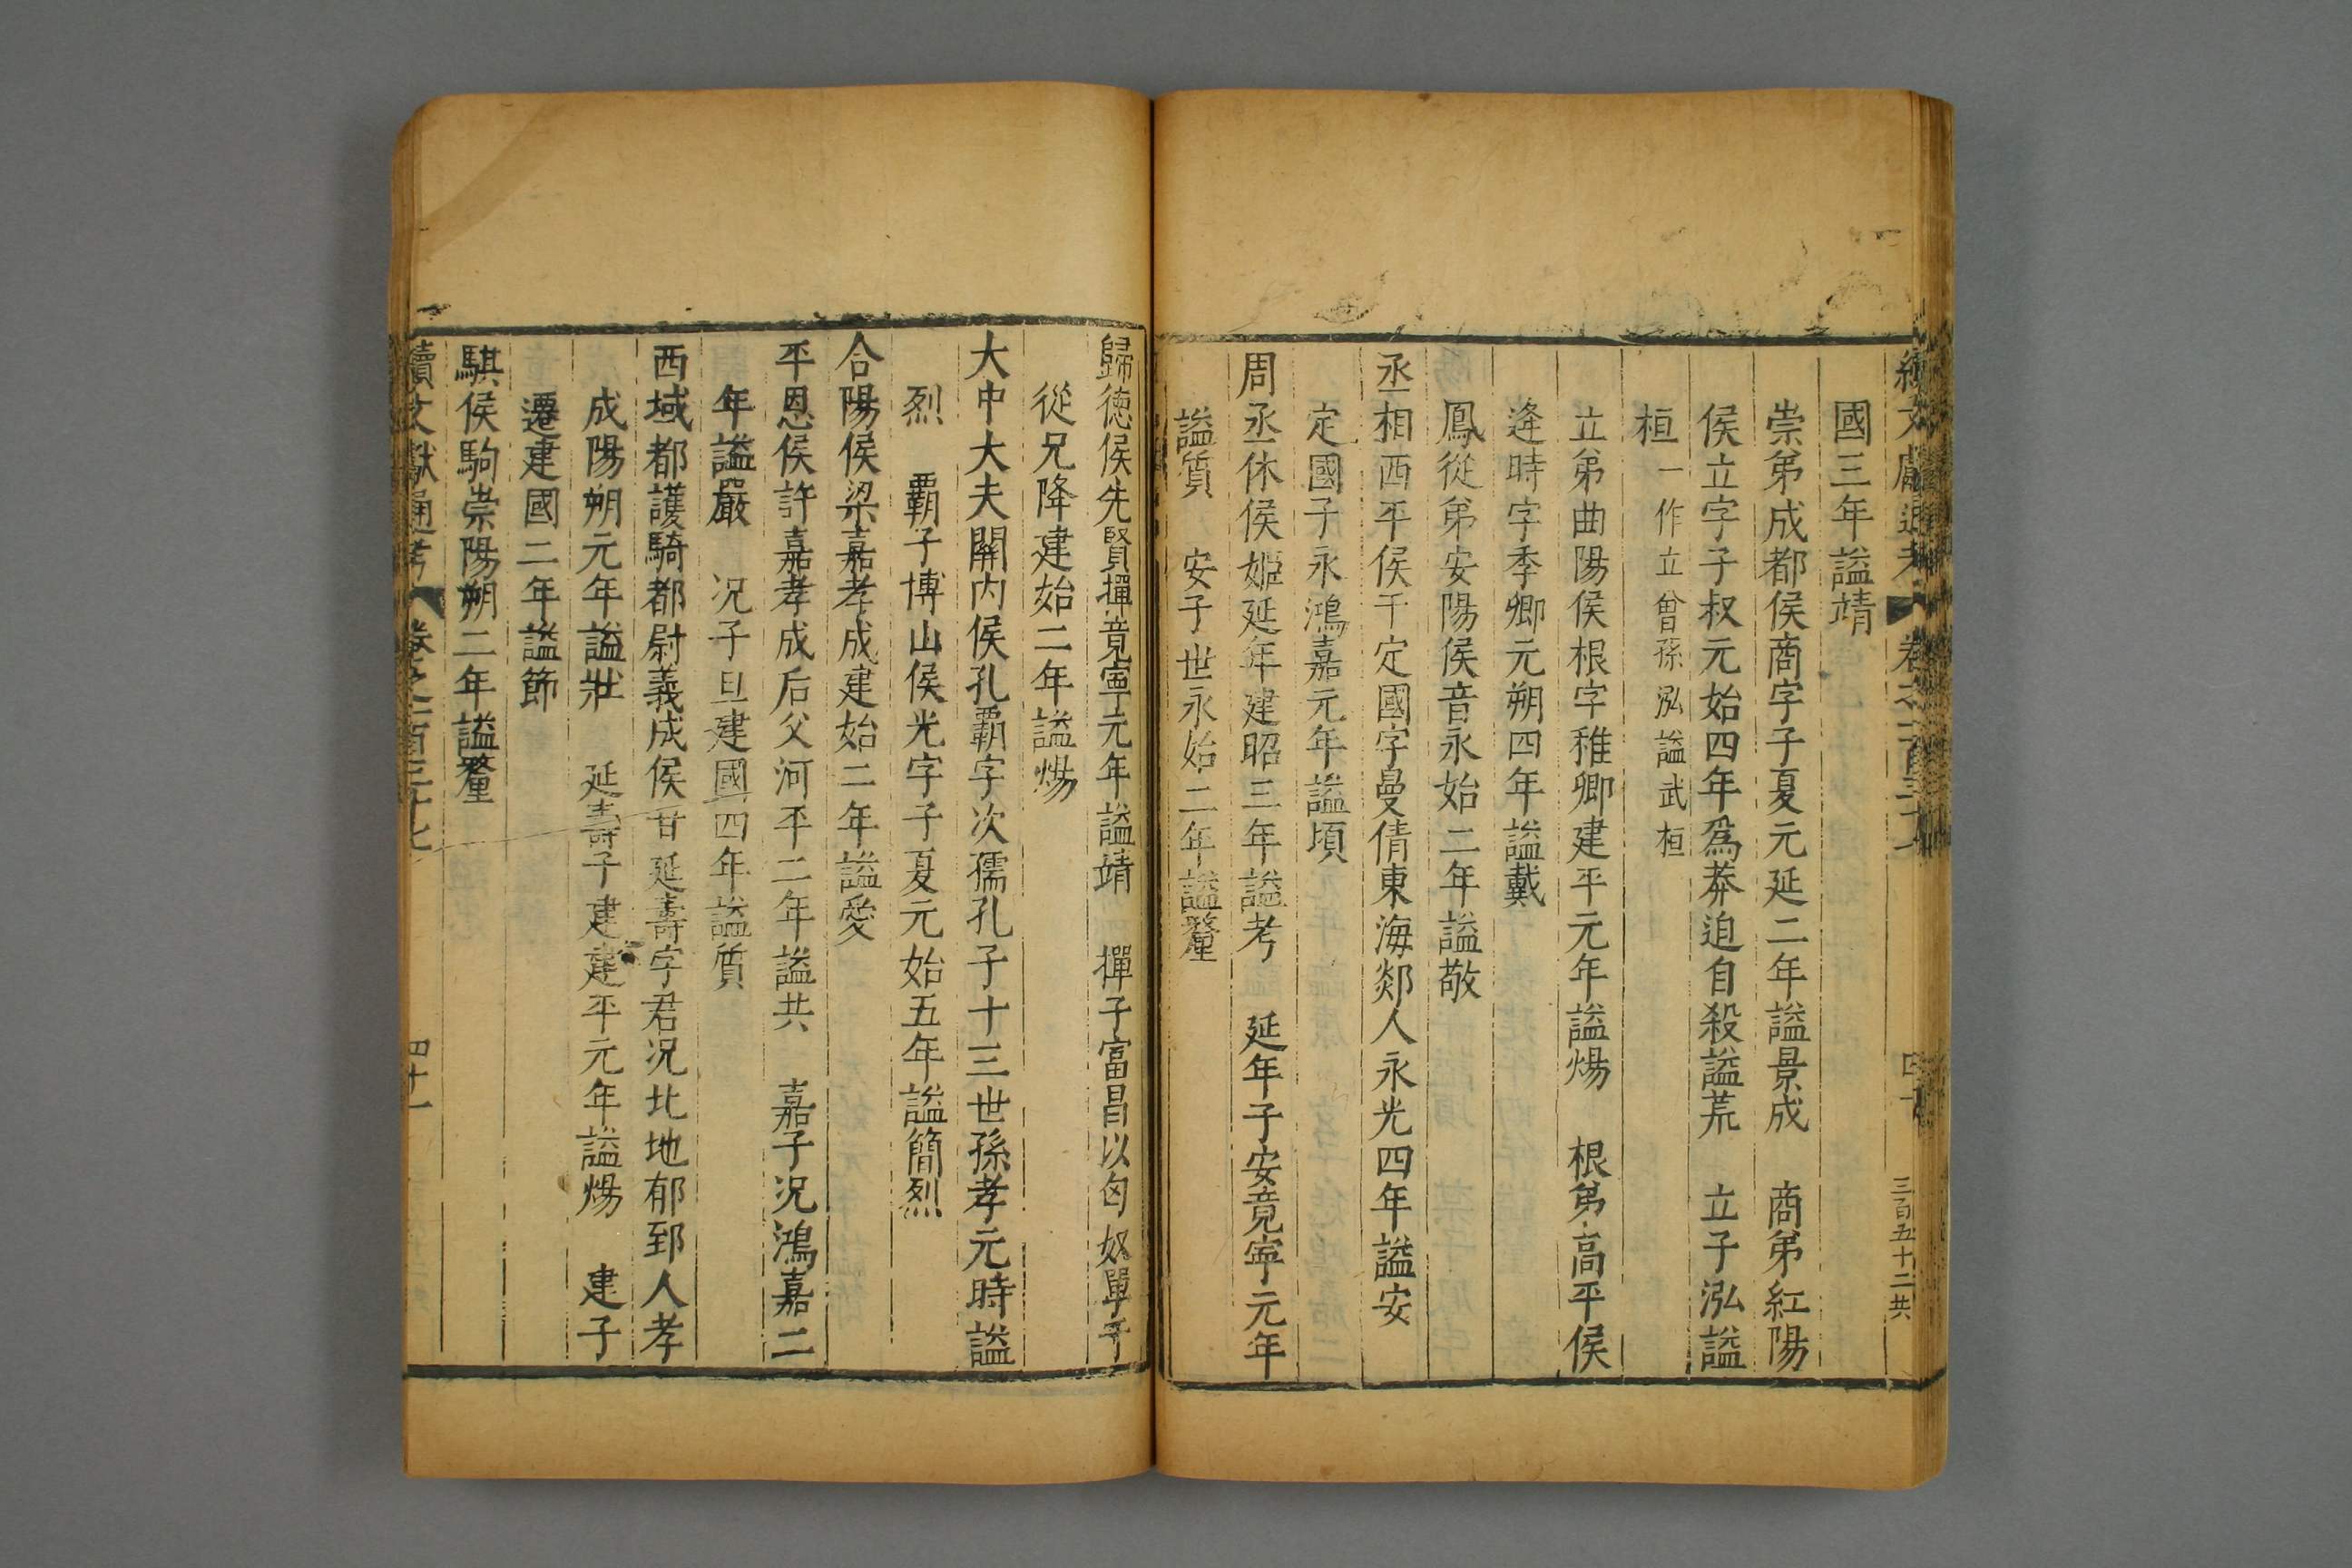 續文獻通考 卷之一百三十七 四十 三百五十二共
國三年謚靖
崇弟成都侯商字子夏元延二年謚景成 商弟紅陽
侯立字子叔元始四年爲莽迫自殺謚荒 立子泓謚
桓一作立曾孫泓謚武桓
立弟曲陽侯根字稚卿建平元年謚煬 根弟高平侯
逄時字季卿元朔四年謚戴
鳳從弟安陽侯音永始二年謚敬
丞相西平侯于定國字曼倩東海郯人永光四年謚安
定國子永鴻嘉元年謚頃
周丞休侯姬延年建昭三年謚考 延年子安竟寜元年
謚質 安子世永始二年謚釐
歸德侯先賢撣竟寜元年謚靖 撣子富昌以匈奴單于
從兄降建始二年謚煬
大中大夫關內侯孔霸字次孺孔子十三世孫孝元時謚
烈 霸子博山侯光字子夏元始五年謚簡烈
合陽侯梁嘉孝成建始二年謚愛
平恩侯許嘉孝成后父河平二年謚共 嘉子况鴻嘉二
年謚嚴 况子旦建國四年謚質
西域都護騎都尉義成侯甘延壽字君况北地郁郅人孝
成陽朔元年謚壯 延壽子建建平元年謚煬 建子
遷建國二年謚節
騏侯駒崇陽朔二年謚釐
續文獻通考 卷之一百三十七 四十一